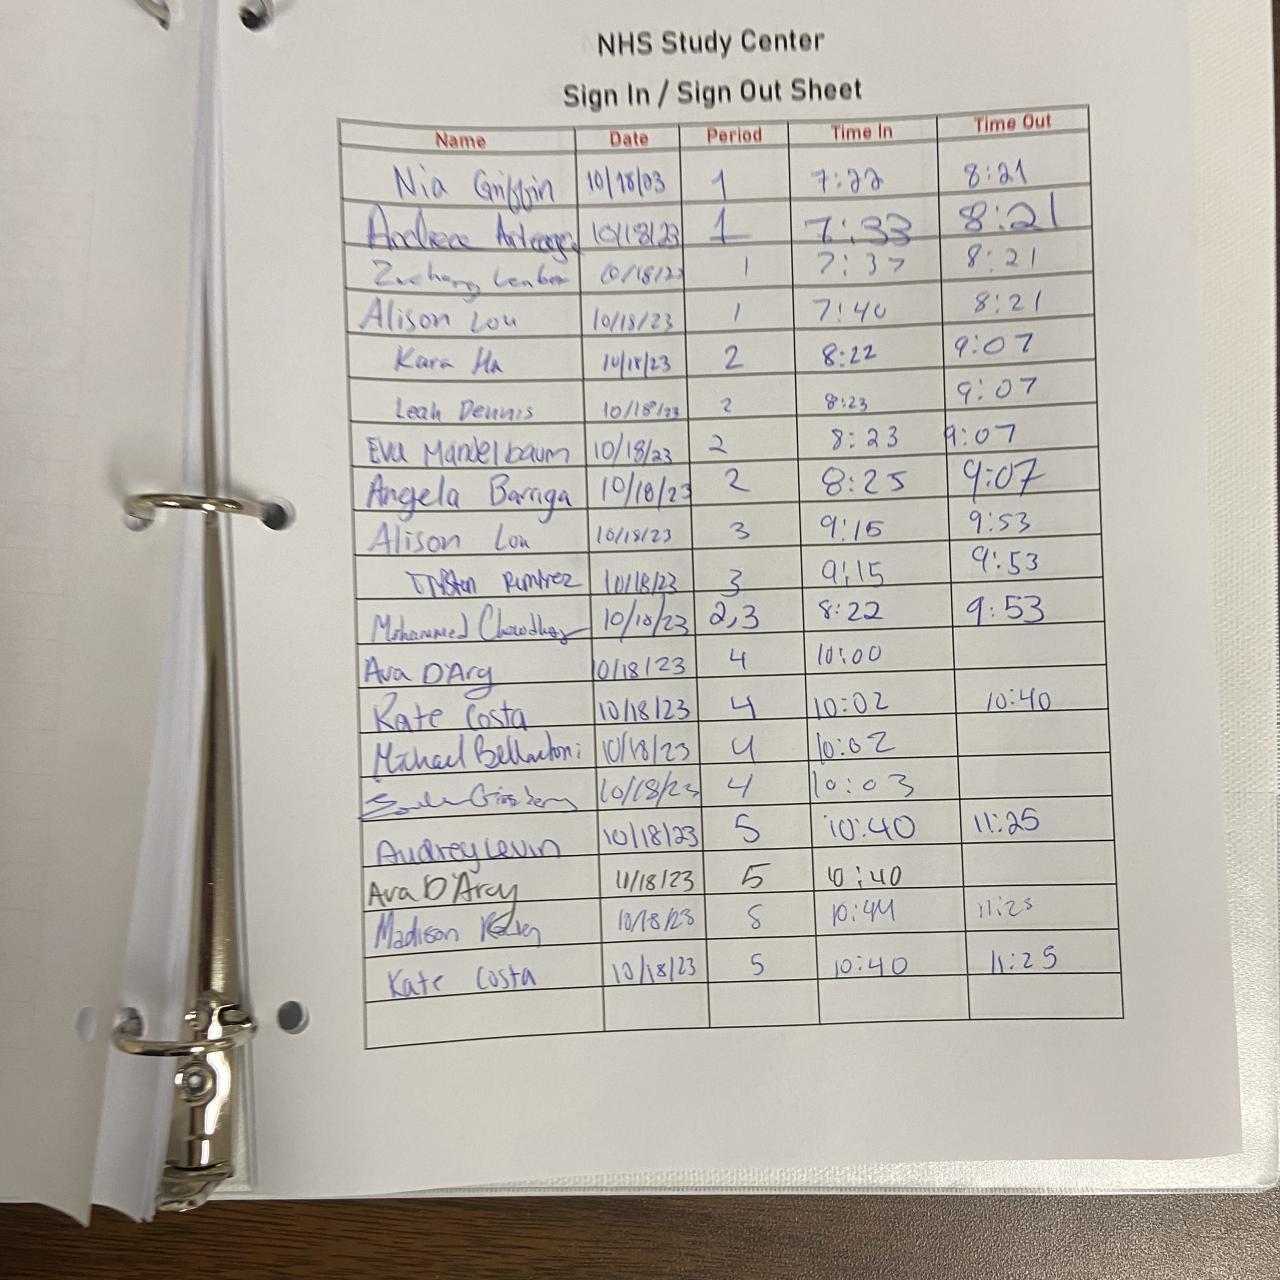 NHS Study Center
Sign In / Sign Out Sheet
Name Date Period Time In Time Out
Nia Griffin 10/18/03 1 7:22 8:21
10/18/23 1 7:33 8:21
Zachary 10/18/23 1 7:37 8:21
Alison Lou 10/18/23 1 7:40 8:21
Kara Ha 10/18/23 2 8:22 9:07
Leah Dennis 10/18/23 2 8:23 9:07
Eva Mandelbaum 10/18/23 2 8:23 9:07
Angela Barriga 10/18/23 2 8:25 9:07
Alison Lou 10/18/23 3 9:15 9:53
10/18/23 3 9:15 9:53
Mohammed Chowdhury 10/18/23 2,3 8:22 9:53
Ava D'Arcy 10/18/23 4 10:00
Kate Costa 10/18/23 4 10:02 10:40
Michael Bellantoni 10/18/23 4 10:02
10/18/23 4 10:03
Audrey Levin 10/18/23 5 10:40 11:25
Ava D'Arcy 11/18/23 5 10:40
Madison 10/18/23 5 10:44 11:25
Kate Costa 10/18/23 5 10:40 11:25